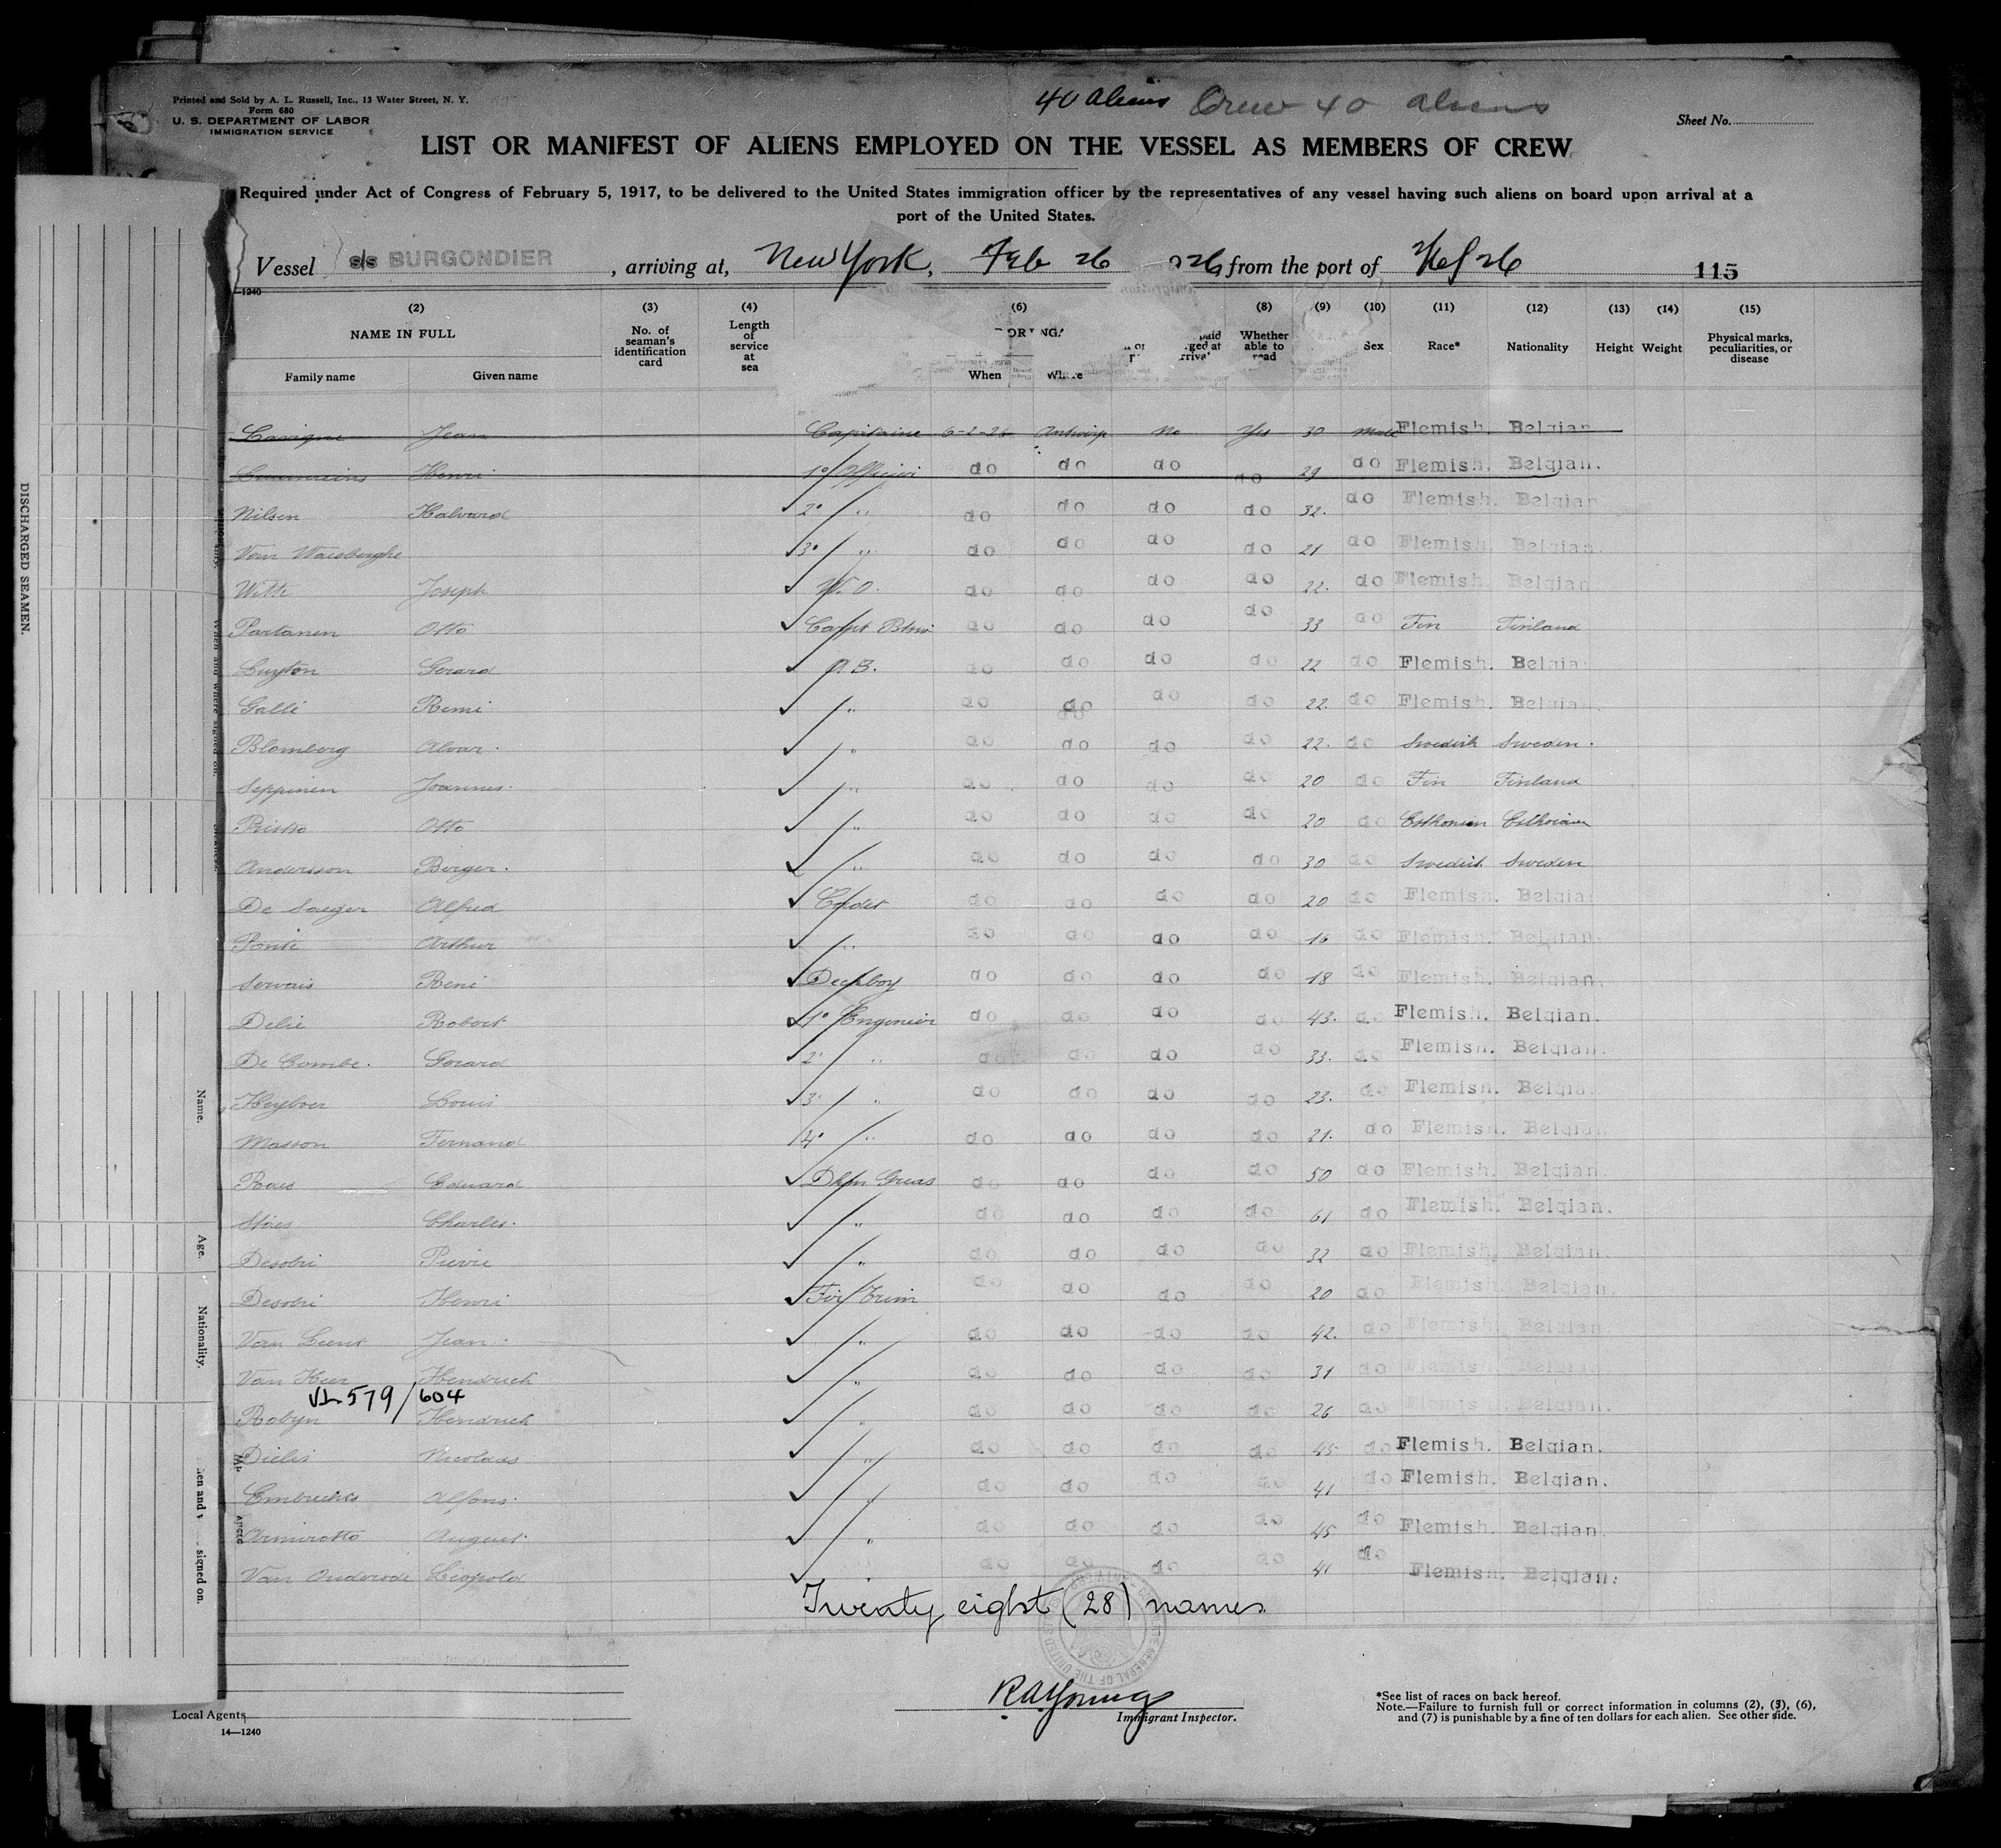 40 Aliens Crew 40 aliens
Printed and Sold by A. L. Russell, Inc., 13 Water Street, N. Y.
Form 680
U. S. DEPARTMENT OF LABOR
IMMIGRATION SERVICE
Sheet No.
LIST OR MANIFEST OF ALIENS EMPLOYED ON THE VESSEL AS MEMBERS OF CREW
Required under Act of Congress of February 5, 1917, to be delivered to the United States immigration officer by the representatives of any vessel having such aliens on board upon arrival at a
port of the United States.
Vessel s/s BURGONDIER, arriving at, New York, Feb 26 926 from the port of 115
(2) (3) (4) (6) (8) (9) (10) (11) (12) (13) (14) (15)
NAME IN FULL
Family name Given name
No. of seaman's identification card
Length of service at sea
When
Whether able to read
Sex Race* Nationality Height Weight
Physical marks, peculiarities, or disease
Jean Capitaine 6-2-26 Antwerp No Yes 30 Male Flemish. Belgian
Henri 1° do do do do 29 do Flemish. Belgian.
Nilsen Halvard 2° " do do do do 32. do Flemish. Belgian
Van Waesberghe 3° " do do do do 21 do Flemish. Belgian.
Joseph W. O. do do do do 22. do Flemish Belgian
Partanen Otto do do do do 33 do Fin Finland
Luyten Gerard A. B. do do do do 22 do Flemish. Belgia
Galle Remi " do do do do 22. do Flemish. Belgian.
Blomberg Alvar. " do do do do 22. do Swedish Sweden.
Seppinen Joannes. " do do do do 20 do Fin Finland
Otto " do do do do 20 do Esthonian
Andersson Birger. " do do do do 30 do Swedish Sweden
De Saeger Alfred Cadet do do do do 20 do Flemish. Belgia
Arthur " do do do do 16 do Flemish. Belgian.
Servais René Deckboy do do do do 18 do Flemish. Belgian.
Delie Robert 1° Engineer do do do do 43. do Flemish. Belgian.
De Combe. Gerard 2° " do do do do 33. do Flemish. Belgian.
Heyboer Louis 3° " do do do do 23. do Flemish. Belgia
Masson Fernand 4° " do do do do 21. do Flemish. Belgian
Roes Eduard do do do do 50 do Flemish. Belgian.
Stoes Charles. " do do do do 61 do Flemish. Belgian.
Desobri Pierre " do do do do 32 do Flemish. Belgian.
Desobri Henri Fir/Trim do do do do 20 do Flemish. Belgian
Jean. " do do do do 42. do Flemish. Belgian
Van Heer Hendrick " do do do do 31 do
VL 579/604
Robyn Hendrick " do do do do 26 do Belgian.
Dielis Nicolaas " do do do do 45 do Flemish. Belgian.
Embrechts Alfons. " do do do do 41 do Flemish. Belgian.
August. " do do do do 45 do Flemish. Belgian.
Leopold do do do do 41 do Flemish. Belgian.
Twenty eight (28) names
RA Young
Immigrant Inspector.
Local Agents
14—1240
*See list of races on back hereof.
Note.—Failure to furnish full or correct information in columns (2), (3), (6),
and (7) is punishable by a fine of ten dollars for each alien. See other side.
DISCHARGED SEAMEN.
Name.
Age.
Nationality.
signed on.